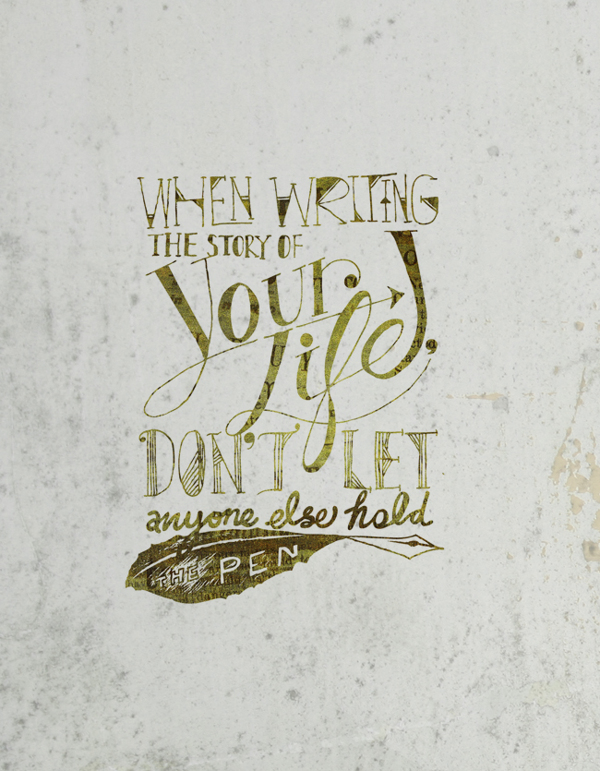 WHEN WRITING
THE STORY OF
Your
Life,
DON'T LET
anyone else hold
THE PEN